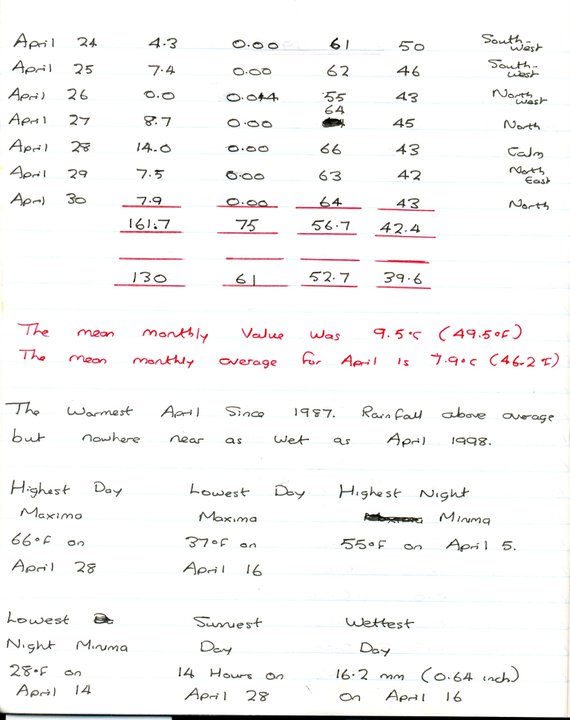 April 24 4.3 0.00 61 50 South-west
April 25 7.4 0.00 62 46 South-west
April 26 0.0 0.044 55 43 North west
April 27 8.7 0.00 64 45 North
April 28 14.0 0.00 66 43 Calm
April 29 7.5 0.00 63 42 North East
April 30 7.9 0.00 64 43 North
161.7 75 56.7 42.4
130 61 52.7 39.6
The mean monthly Value was 9.5°C (49.5°F)
The mean monthly average for April is 7.9°C (46.2 F)
The Warmest April Since 1987. Rainfall above average
but nowhere near as wet as April 1998.
Highest Day Lowest Day Highest Night
Maxima Maxima Minma
66°F on 37°F on 55°F on April 5.
April 28 April 16
Lowest Sunniest Wettest
Night Minuma Day Day
28°F on 14 Hours on 16.2 mm (0.64 inch)
April 14 April 28 on April 16